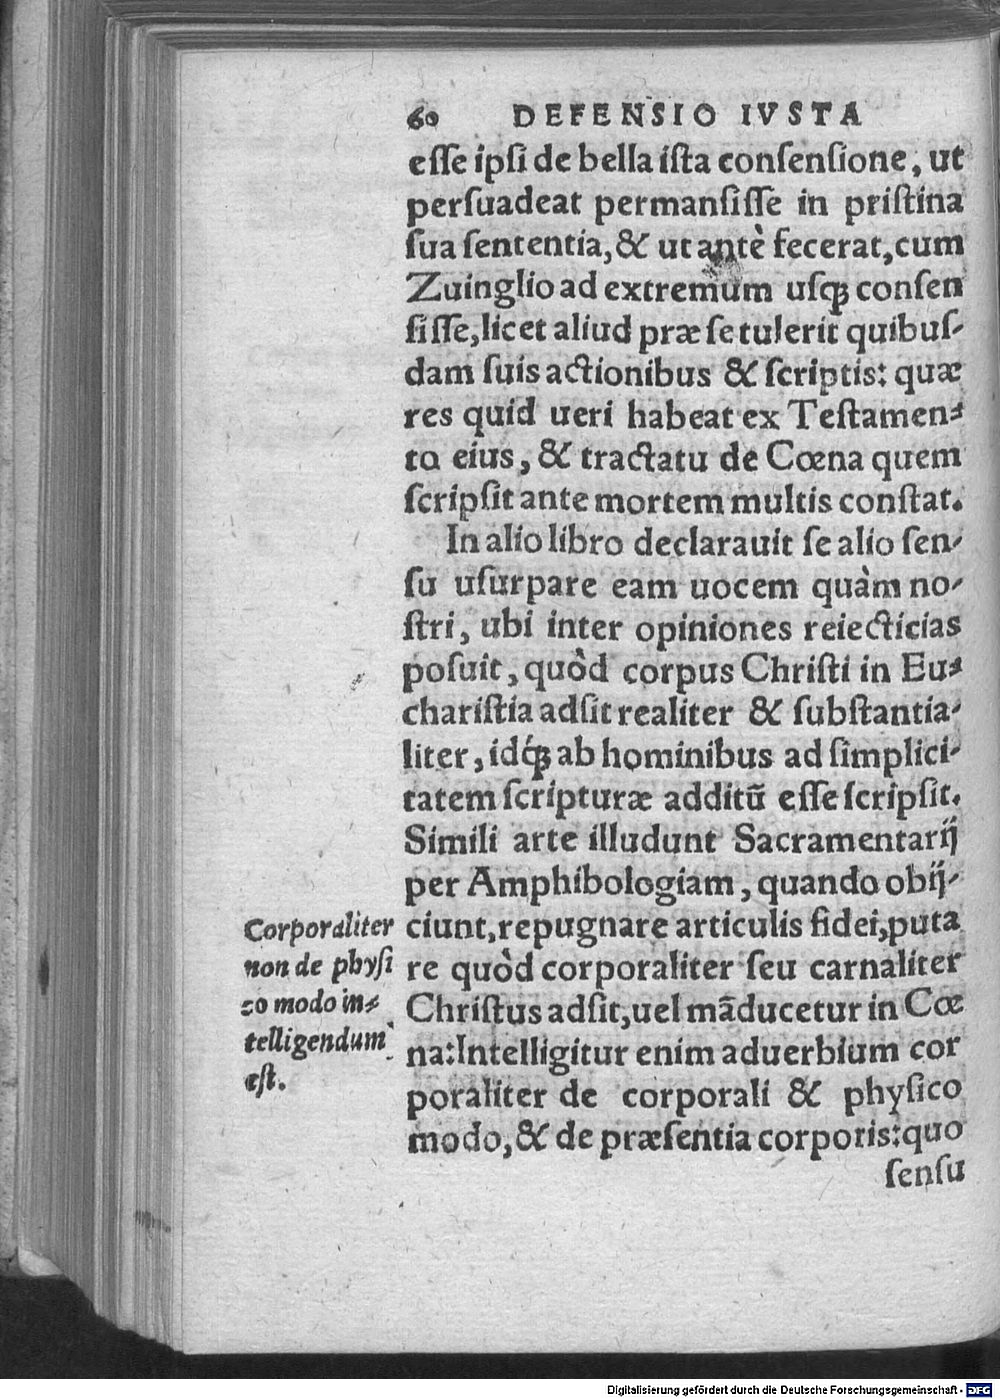 60 DEFENSIO IVSTA
esse ipsi de bella ista consensione, ut
persuadeat permansisse in pristina
sua sententia, & ut antè fecerat, cum
Zuinglio ad extremum usq́; consen
sisse, licet aliud præ se tulerit quibus-
dam suis actionibus & scriptis: quæ
res quid ueri habeat ex Testamen-
to eius, & tractatu de Cœna quem
scripsit ante mortem multis constat.
In alio libro declarauit se alio sen-
su usurpare eam uocem quàm no-
stri, ubi inter opiniones reiecticias
posuit, quòd corpus Christi in Eu-
charistia adsit realiter & substantia-
liter, idq́; ab hominibus ad simplici-
tatem scripturæ additũ esse scripsit.
Simili arte illudunt Sacramentarij
per Amphibologiam, quando obij-
ciunt, repugnare articulis fidei, puta
re quòd corporaliter seu carnaliter
Christus adsit, uel mãducetur in Cœ
na: Intelligitur enim aduerbium cor
poraliter de corporali & physico
modo, & de præsentia corporis: quo
sensu
Corporaliter
non de physi
co modo in-
telligendum
est.
Digitalisierung gefördert durch die Deutsche Forschungsgemeinschaft - DFG